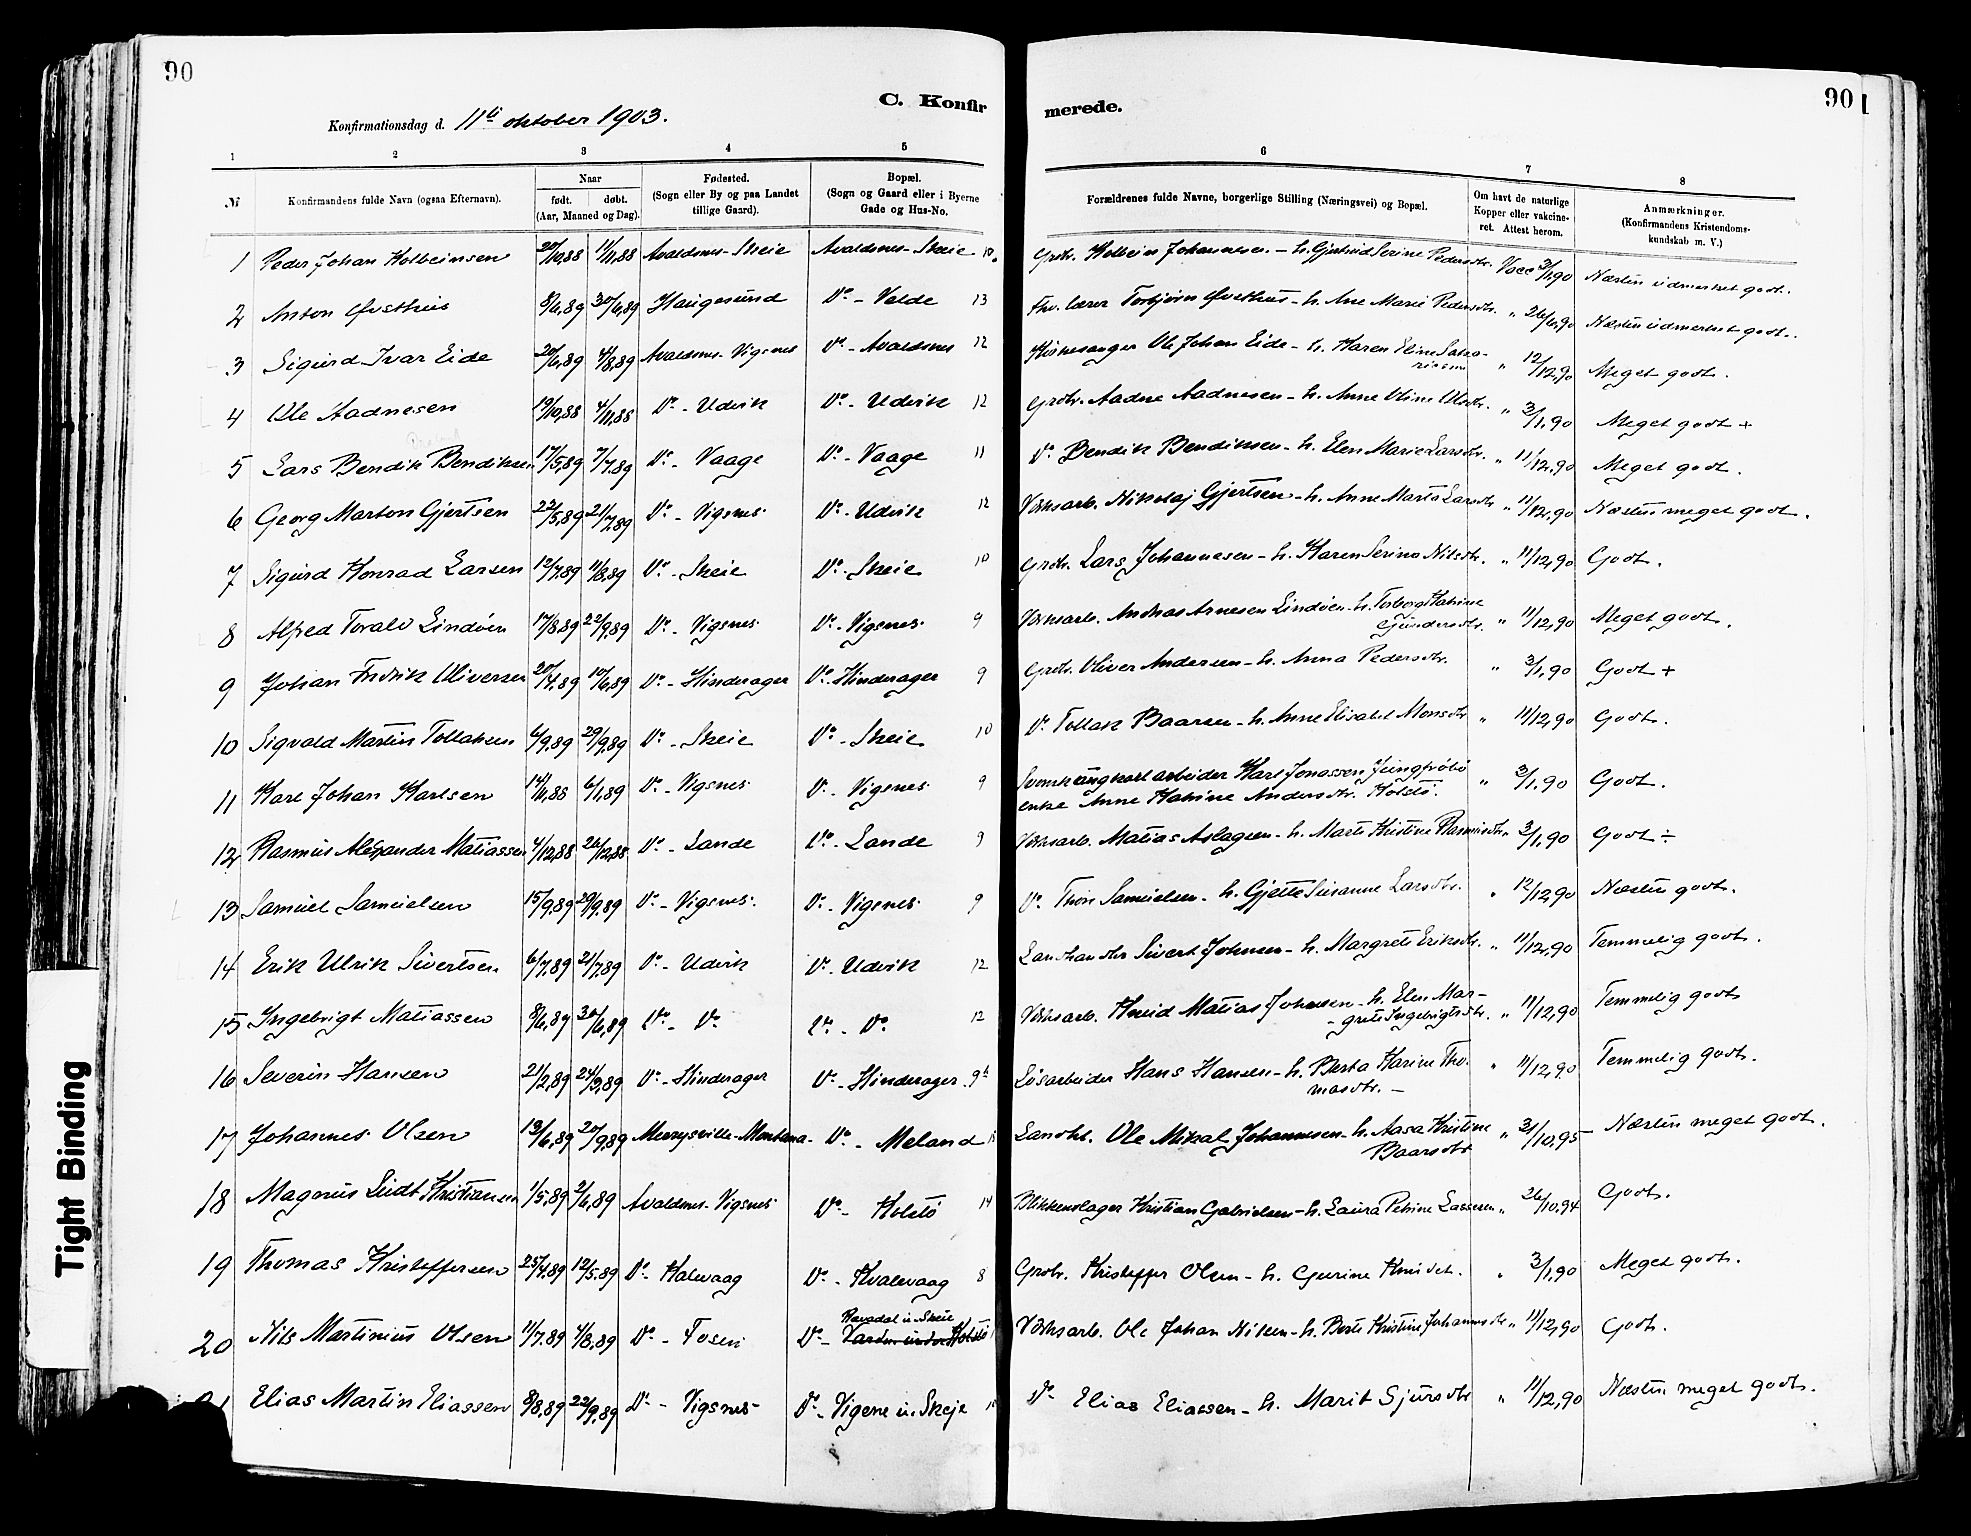 90
C. Konfir
merede.
90
Konfirmationsdag d. 11te oktober 1903.
1 2 3 4 5 6 7 8
№
Konfirmandens fulde Navn (ogsaa Efternavn).
Naar
født. døbt.
(Aar, Maaned og Dag).
Fødested.
(Sogn eller By og paa Landet
tillige Gaard).
Bopæl.
(Sogn og Gaard eller i Byerne
Gade og Hus-No.
Forældrenes fulde Navne, borgerlige Stilling (Næringsvei) og Bopæl.
Om havt de naturlige
Kopper eller vakcine-
ret. Attest herom.
Anmærkninger.
(Konfirmandens Kristendoms-
kundskab m. V.)
1 Peder Johan Kolbeinsen 20/10,88 11/11,88 Avaldsnes-Skeie Avaldsnes-Skeie 10. Grdbr. Kolbein Johannesen - h. Gjertrud Serine Pedersdtr. Vacc 3/1,90 Næsten udmerket godt.
2 Anton Østhus 8/6,89 30/6,89 Haugesund Do - Velde 13 Fhv. lærer Torbjörn Østhus - h. Ane Marie Pedersdtr. " 26/6,90 Næsten udmerket godt.
3 Sigurd Ivar Eide 20/6,89 4/8,89 Avaldsnes-Vigsnes Do - Avaldsnes 12 Kirkesanger Ole Johan Eide - h. Karen Eline Saka-
riasen " 12/12,90 Meget godt.
4 Ole Aadnesen 19/10,88 4/11,88 Do - Udvik Do - Udvik 12 Grdbr. Aadne Aadnesen - h. Anne Oline Olsdtr. " 3/1,90 Meget godt +
5 Lars Bendik Bendiksen 17/5,89 7/7,89 Do - Vaage Do - Vaage 11 Do Bendik Bendiksen - h. Elen Marie Larsdtr. " 11/12,90 Meget godt.
6 Georg Marton Gjertsen 22/5,89 21/7,89 Do - Vigsnes Do - Udvik 12 Verksarb. Nikolaj Gjertsen - h. Anne Marta Larsdtr " 11/12,90 Næsten meget godt.
7 Sigurd Konrad Larsen 12/7,89 11/8,89 Do - Skeie Do - Skeie 10 Grdbr. Lars Johannesen - h. Karen Serina Nilsdtr. " 11/12,90 Godt.
8 Alfred Toralv Lindöen 17/8,89 22/9,89 Do - Vigsnes Do - Vigsnes 9 Verksarb. Andreas Arnesen Lindöen - h. Torborg Katrine
Gundersdtr. " 11/12,90 Meget godt.
9 Johan Fredrik Oliversen 20/4,89 10/6,89 Do - Hinderager Do - Hinderager 9 Grdbr. Oliver Andersen - h. Anna Pedersdtr. " 3/1,90 Godt +
10 Sigvald Martin Tollaksen 6/9,89 29/9,89 Do - Skeie Do - Skeie 10 Do Tollak Baarsen - h. Anne Elisabet Monsdtr " 11/12,90 Godt.
11 Karl Johan Karlsen 14/11,88 6/1,89 Do - Vigsnes Do - Vigsnes 9 Svensk ungkarl arbeider Karl Jonassen
enke Anne Katrine Andersdtr. Kolstö. " 3/1,90 Godt.
12 Rasmus Alexander Matiassen 4/12,88 26/12,88 Do - Lande Do - Lande 9 Verksarb. Matias Aslagsen - h. Marte Kristine Rasmusdtr " 3/1,90 Godt ÷
13 Samuel Samuelsen 15/9,89 29/9,89 Do - Vigsnes Do - Vigsnes 9 Do Thore Samuelsen - h. Gjette Susanne Larsdtr. " 12/12,90 Næsten godt.
14 Erik Ulrik Sivertsen 6/7,89 21/7,89 Do - Udvik Do - Udvik 12 Landhandler Sivert Johnsen - h. Margrete Eriksdtr. " 11/12,90 Temmelig godt.
15 Ingebrigt Matiassen 8/6,89 30/6,89 Do - Do Do - Do 12 Verksarb. Knud Matias Johnsen - h. Elen Mar-
grete Ingebrigtsdtr. " 11/12,90 Temmelig godt
16 Severin Hansen 21/2,89 24/3,89 Do - Hinderager Do - Hinderager 9 b Løsarbeider Hans Hansen - h. Berta Karine Tho-
masdtr. - " 11/12,90 Temmelig godt.
17 Johannes Olsen 13/6,89 20/9,89 Merrysville-Montana Do - Meland Landhl. Ole Mikal Johannesen - h. Aasa Kristine
Baarsdtr " 31/10,95 Næsten meget godt.
18 Magnus Lüdt Kristiansen 1/5,89 2/6,89 Avaldsnes-Vigsnes Do - Kolstö 14 Blikkenslager Kristian Gabrielsen - h. Laura Petrine Lassesen " 26/10,94 Godt.
19 Thomas Kristoffersen 25/4,89 12/5,89 Do - Kalevaag Do - Kvalevaag 8 Grdbr. Kristoffer Olsen - h. Gurine Knudsdt. " 3/1,90 Meget godt.
20 Nils Martinius Olsen 11/7,89 4/8,89 Do - Fosen Do - Ramsdal u. Skeie Verksarb. Ole Johan Nilsen - h. Berte Kristine Johannesdtr " 11/12,90 Godt.
Elias Martin Eliassen 8/8,89 22/9,89 Do - Vigsnes Do - Vigene u. Skeje 10 Do Elias Eliassen - h. Marit Sjursdtr " 11/12,90 Næsten meget godt.
Tight Binding